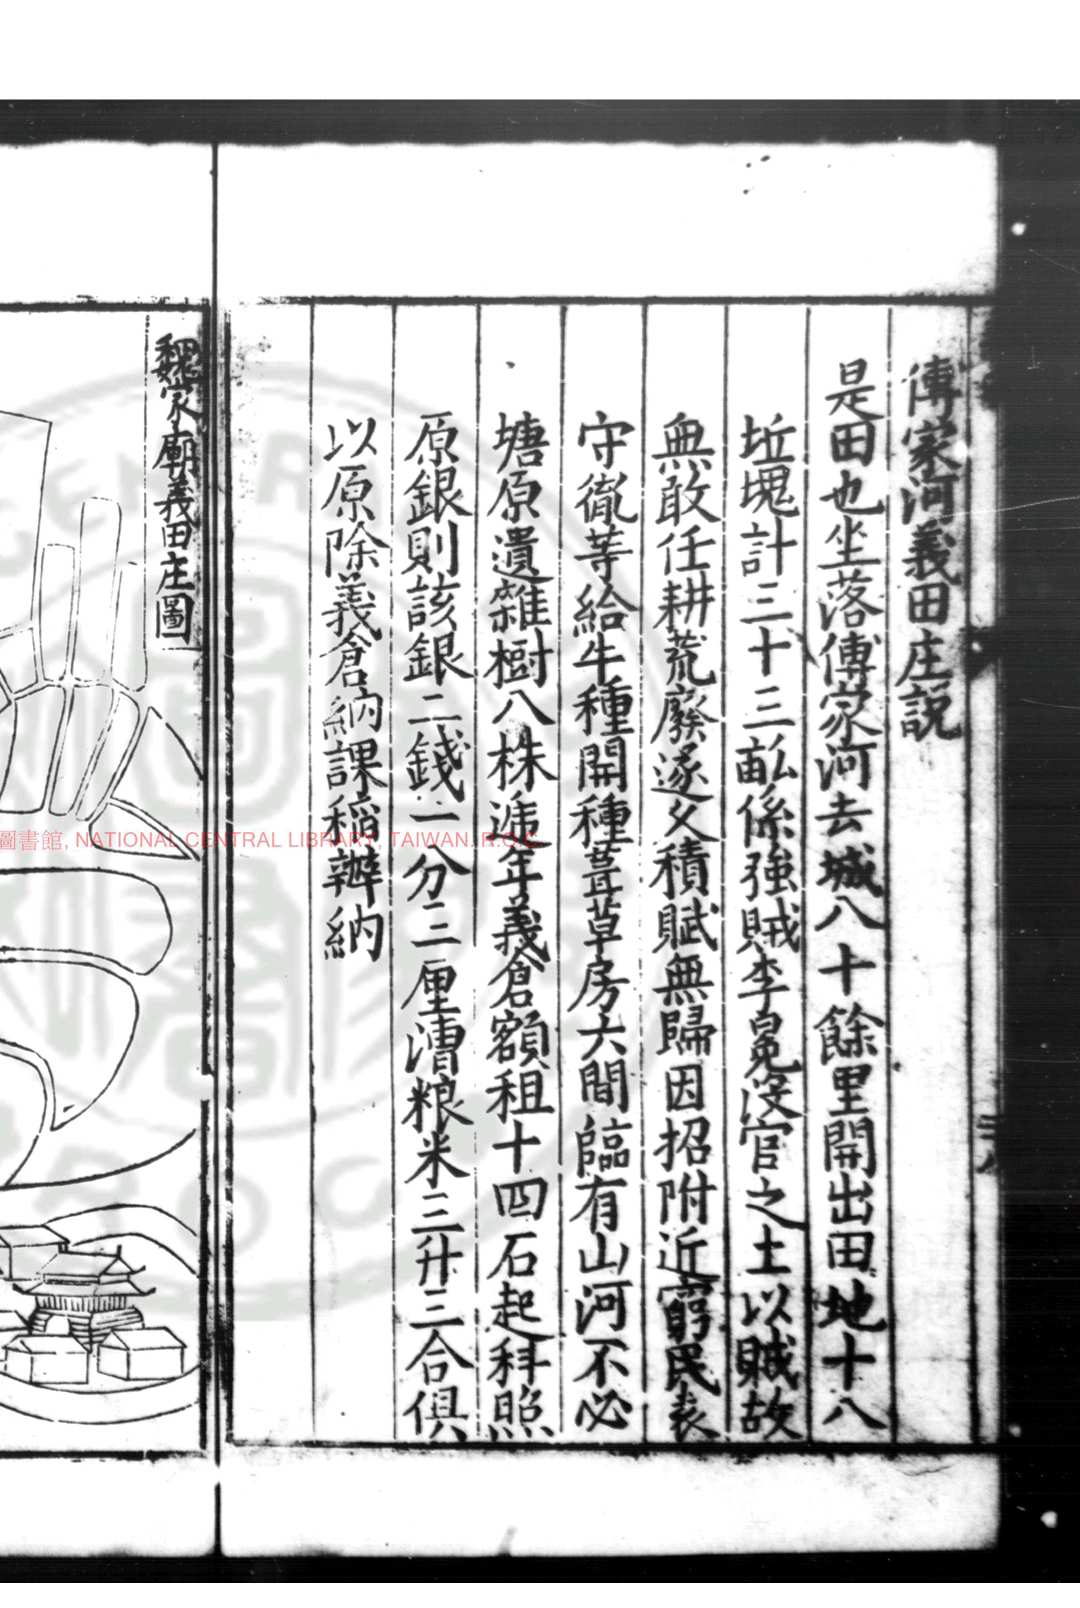 傳家河義田庄説
是田也坐落傳家河去城八十餘里開出田地十八
坵塊計三十三畆係強賊李冕没官之土以賊故
無敢任耕荒廢逐父積賦無歸因招附近窮民袁
守徿等給牛種開種葺草房六間臨有山河不必
塘原遺雜樹八株遞年義倉額租十四石起科照
原銀則該銀二錢一分二厘漕粮米三升三合俱
以原除義倉納課稲辦納
魏家廟義田庄圖
圖書館, NATIONAL CENTRAL LIBRARY, TAIWAN. R.O.C.